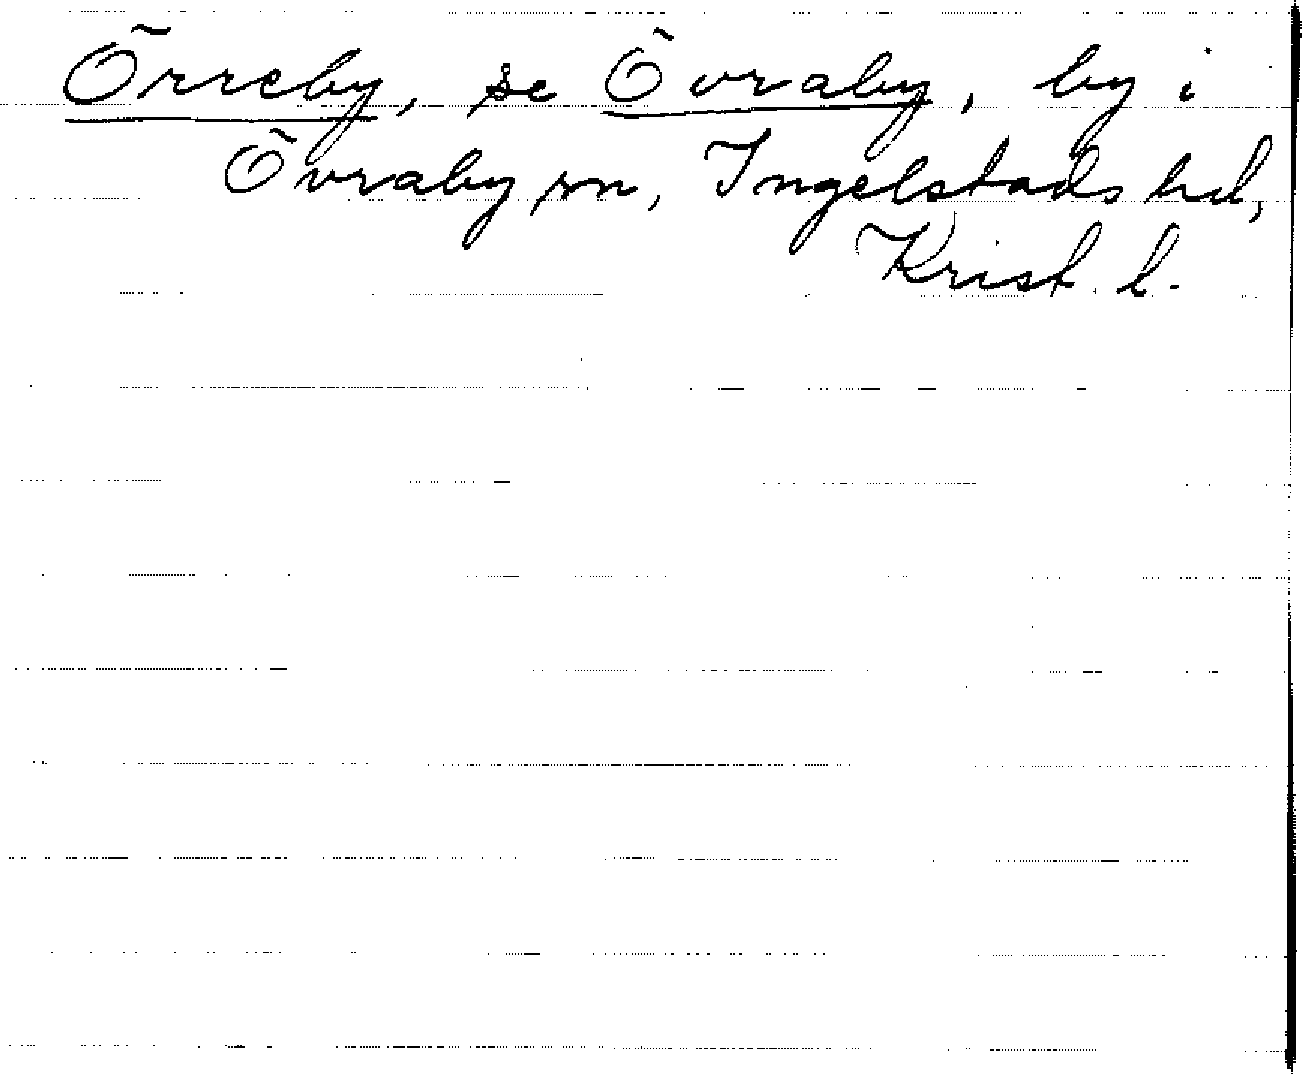 Örreby, se Övraby, by i
Övraby sn, Ingelstads hd,
Krist. l.